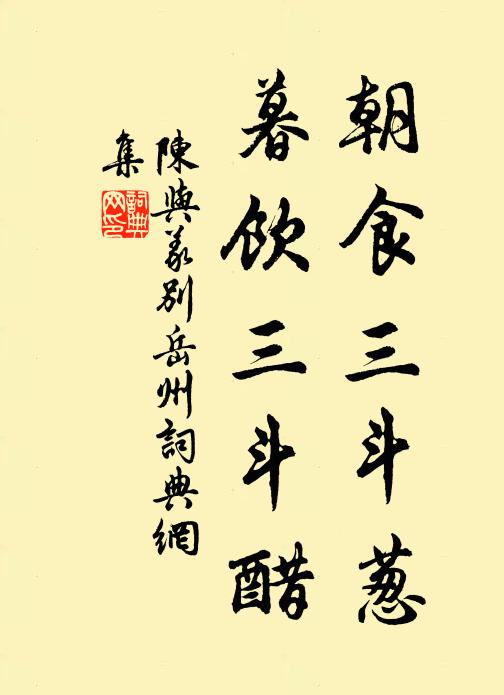 朝食三斗葱
暮饮三斗醋
陳與義别岳州詞典網
集
詞典網印